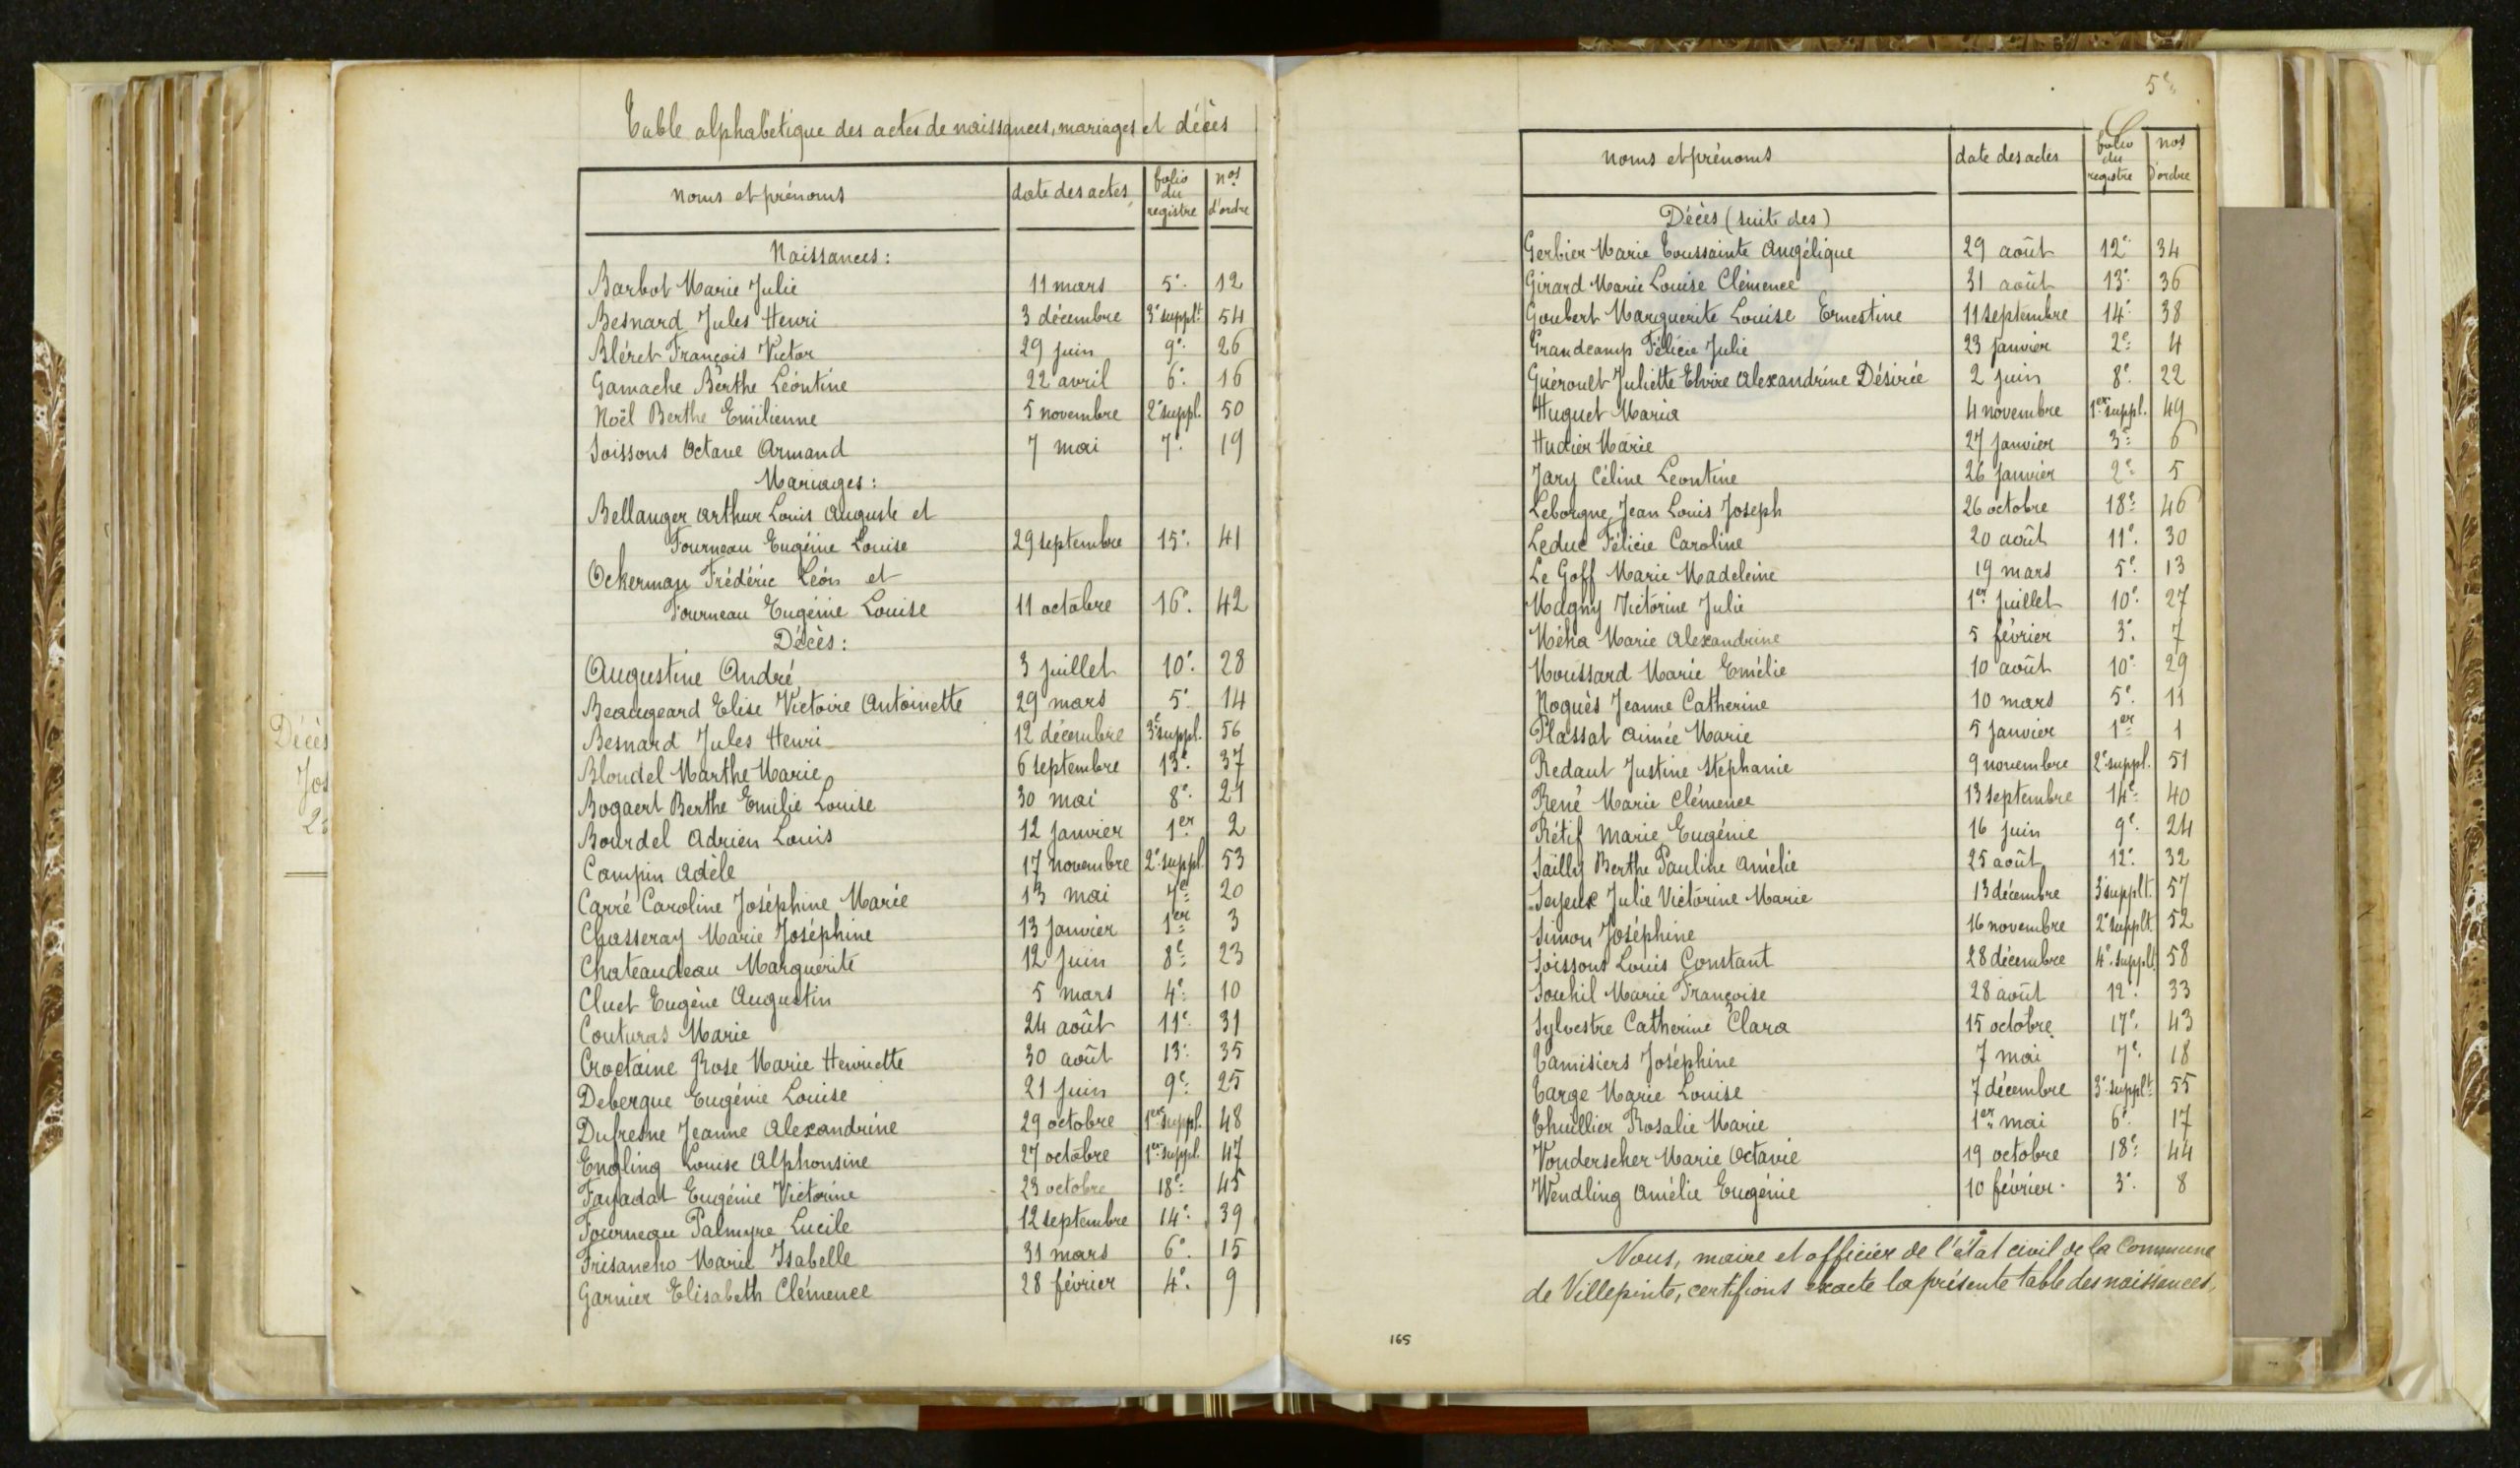 Décès
Jos
2
Table alphabétique des actes de naissances, mariages et décès
noms et prénoms | date des actes | folio du registre | nos d'ordre
Naissances :
Barbot Marie Julie 11 mars 5e 12
Besnard Jules Henri 3 décembre 3e supplt 54
Bléret François Victor 29 juin 9e 26
Gamache Berthe Léontine 22 avril 6e 16
Noël Berthe Emilienne 5 novembre 2e suppl. 50
Soissons Octave Armand 7 mai 7e 19
Mariages :
Bellanger Arthur Louis Auguste et
Fourneau Eugénie Louise 29 septembre 15e 41
Ockerman Frédéric Léon et
Fourneau Eugénie Louise 11 octobre 16e 42
Décès :
Augustine André 3 juillet 10e 28
Beaugeard Elise Victoire Antoinette 29 mars 5e 14
Besnard Jules Henri 12 décembre 3e suppl. 56
Blondel Marthe Marie 6 septembre 13e 37
Bogaert Berthe Emilie Louise 30 mai 8e 21
Bourdel Adrien Louis 12 janvier 1er 2
Campin Adèle 17 novembre 2e suppl. 53
Carré Caroline Joséphine Marie 13 mai 7e 20
Chasseray Marie Joséphine 13 janvier 1er 3
Chateaudeau Marguerite 12 juin 8e 23
Cluet Eugène Augustin 5 mars 4e 10
Couturas Marie 24 août 11e 31
Croctaine Rose Marie Henriette 30 août 13e 35
Debergue Eugénie Louise 21 juin 9e 25
Dufresne Jeanne Alexandrine 29 octobre 1er suppl. 48
Engling Louise Alphonsine 27 octobre 1er suppl. 47
Fayadat Eugénie Victorine 23 octobre 18e 45
Fourneau Palmyre Lucile 12 septembre 14e 39
Frisancho Marie Isabelle 31 mars 6e 15
Garnier Elisabeth Clémence 28 février 4e 9
5e
noms et prénoms | date des actes | folio du registre | nos d'ordre
Décès (suite des)
Gerbier Marie Toussainte Angélique 29 août 12e 34
Girard Marie Louise Clémence 31 août 13e 36
Goubert Marguerite Louise Ernestine 11 septembre 14e 38
Grandcamp Félicie Julie 23 janvier 2e 4
Guéroult Juliette Elvire Alexandrine Désirée 2 juin 8e 22
Huguet Maria 4 novembre 1er suppl. 49
Hudier Marie 27 janvier 3e 6
Jary Céline Léontine 26 janvier 2e 5
Leborgne Jean Louis Joseph 26 octobre 18e 46
Leduc Félicie Caroline 20 août 11e 30
Le Goff Marie Madeleine 19 mars 5e 13
Magny Victorine Julie 1er juillet 10e 27
Méha Marie Alexandrine 5 février 3e 7
Moussard Marie Emélie 10 août 10e 29
Noguès Jeanne Catherine 10 mars 5e 11
Plassat Aimée Marie 5 janvier 1er 1
Redaut Justine Stéphanie 9 novembre 2e suppl. 51
René Marie Clémence 13 septembre 14e 40
Rétif Marie Eugénie 16 juin 9e 24
Sailly Berthe Pauline Amélie 25 août 12e 32
Sayeux Julie Victorine Marie 13 décembre 3e supplt. 57
Simon Joséphine 16 novembre 2e supplt. 52
Soissons Louis Constant 28 décembre 4e supplt. 58
Souhil Marie Françoise 28 août 12e 33
Sylvestre Catherine Clara 15 octobre 17e 43
Tamisiers Joséphine 7 mai 7e 18
Targe Marie Louise 7 décembre 3e supplt 55
Thuillier Rosalie Marie 1er mai 6e 17
Vonderscher Marie Octavie 19 octobre 18e 44
Wendling Amélie Eugénie 10 février 3e 8
Nous, maire et officier de l'état civil de la Commune
de Villepinte, certifions exacte la présente table des naissances,
165